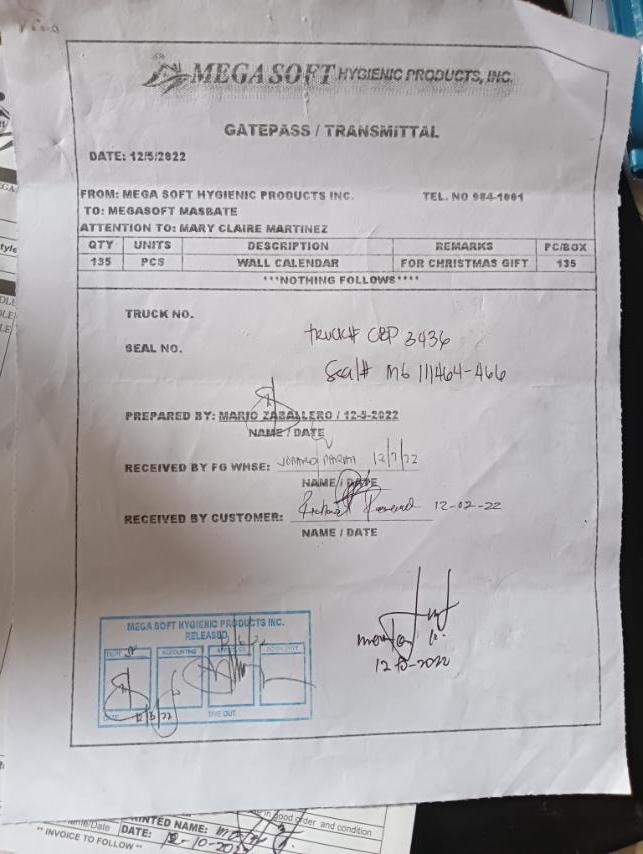 MEGASOFT HYGIENIC PRODUCTS, INC.
GATEPASS / TRANSMITTAL
DATE: 12/5/2022
FROM: MEGA SOFT HYGIENIC PRODUCTS INC. TEL. NO 984-1001
TO: MEGASOFT MASBATE
ATTENTION TO: MARY CLAIRE MARTINEZ
QTY UNITS DESCRIPTION REMARKS PC/BOX
135 PCS WALL CALENDAR FOR CHRISTMAS GIFT 135
***NOTHING FOLLOWS****
TRUCK NO. truck# CBP 3436
SEAL NO. Seal# M6 111464-466
PREPARED BY: MARIO ZABALLERO / 12-5-2022
NAME / DATE
RECEIVED BY FG WHSE: 12/7/22
NAME / DATE
RECEIVED BY CUSTOMER: 12-07-22
NAME / DATE
MEGA SOFT HYGIENIC PRODUCTS INC.
RELEASED
ACCOUNTING
DATE
TIME OUT
in good order and condition
Name/Date PRINTED NAME:
DATE:
" INVOICE TO FOLLOW "